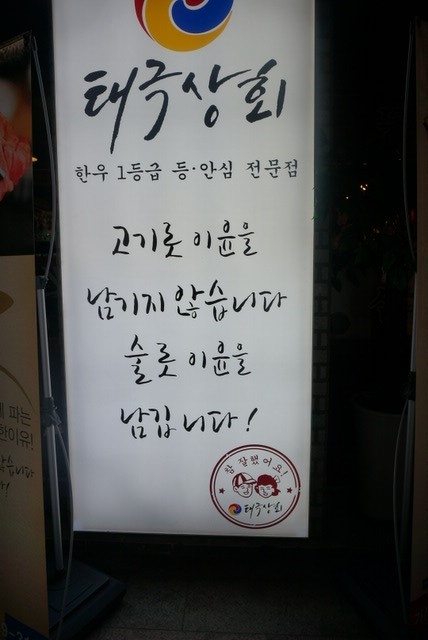 태극상회
한우 1등급 등·안심 전문점
고기롯 이윤을
남기지 않습니다
술롯 이윤을
남깁니다!
참 잘했어요!
태극상회
파는
한이유!